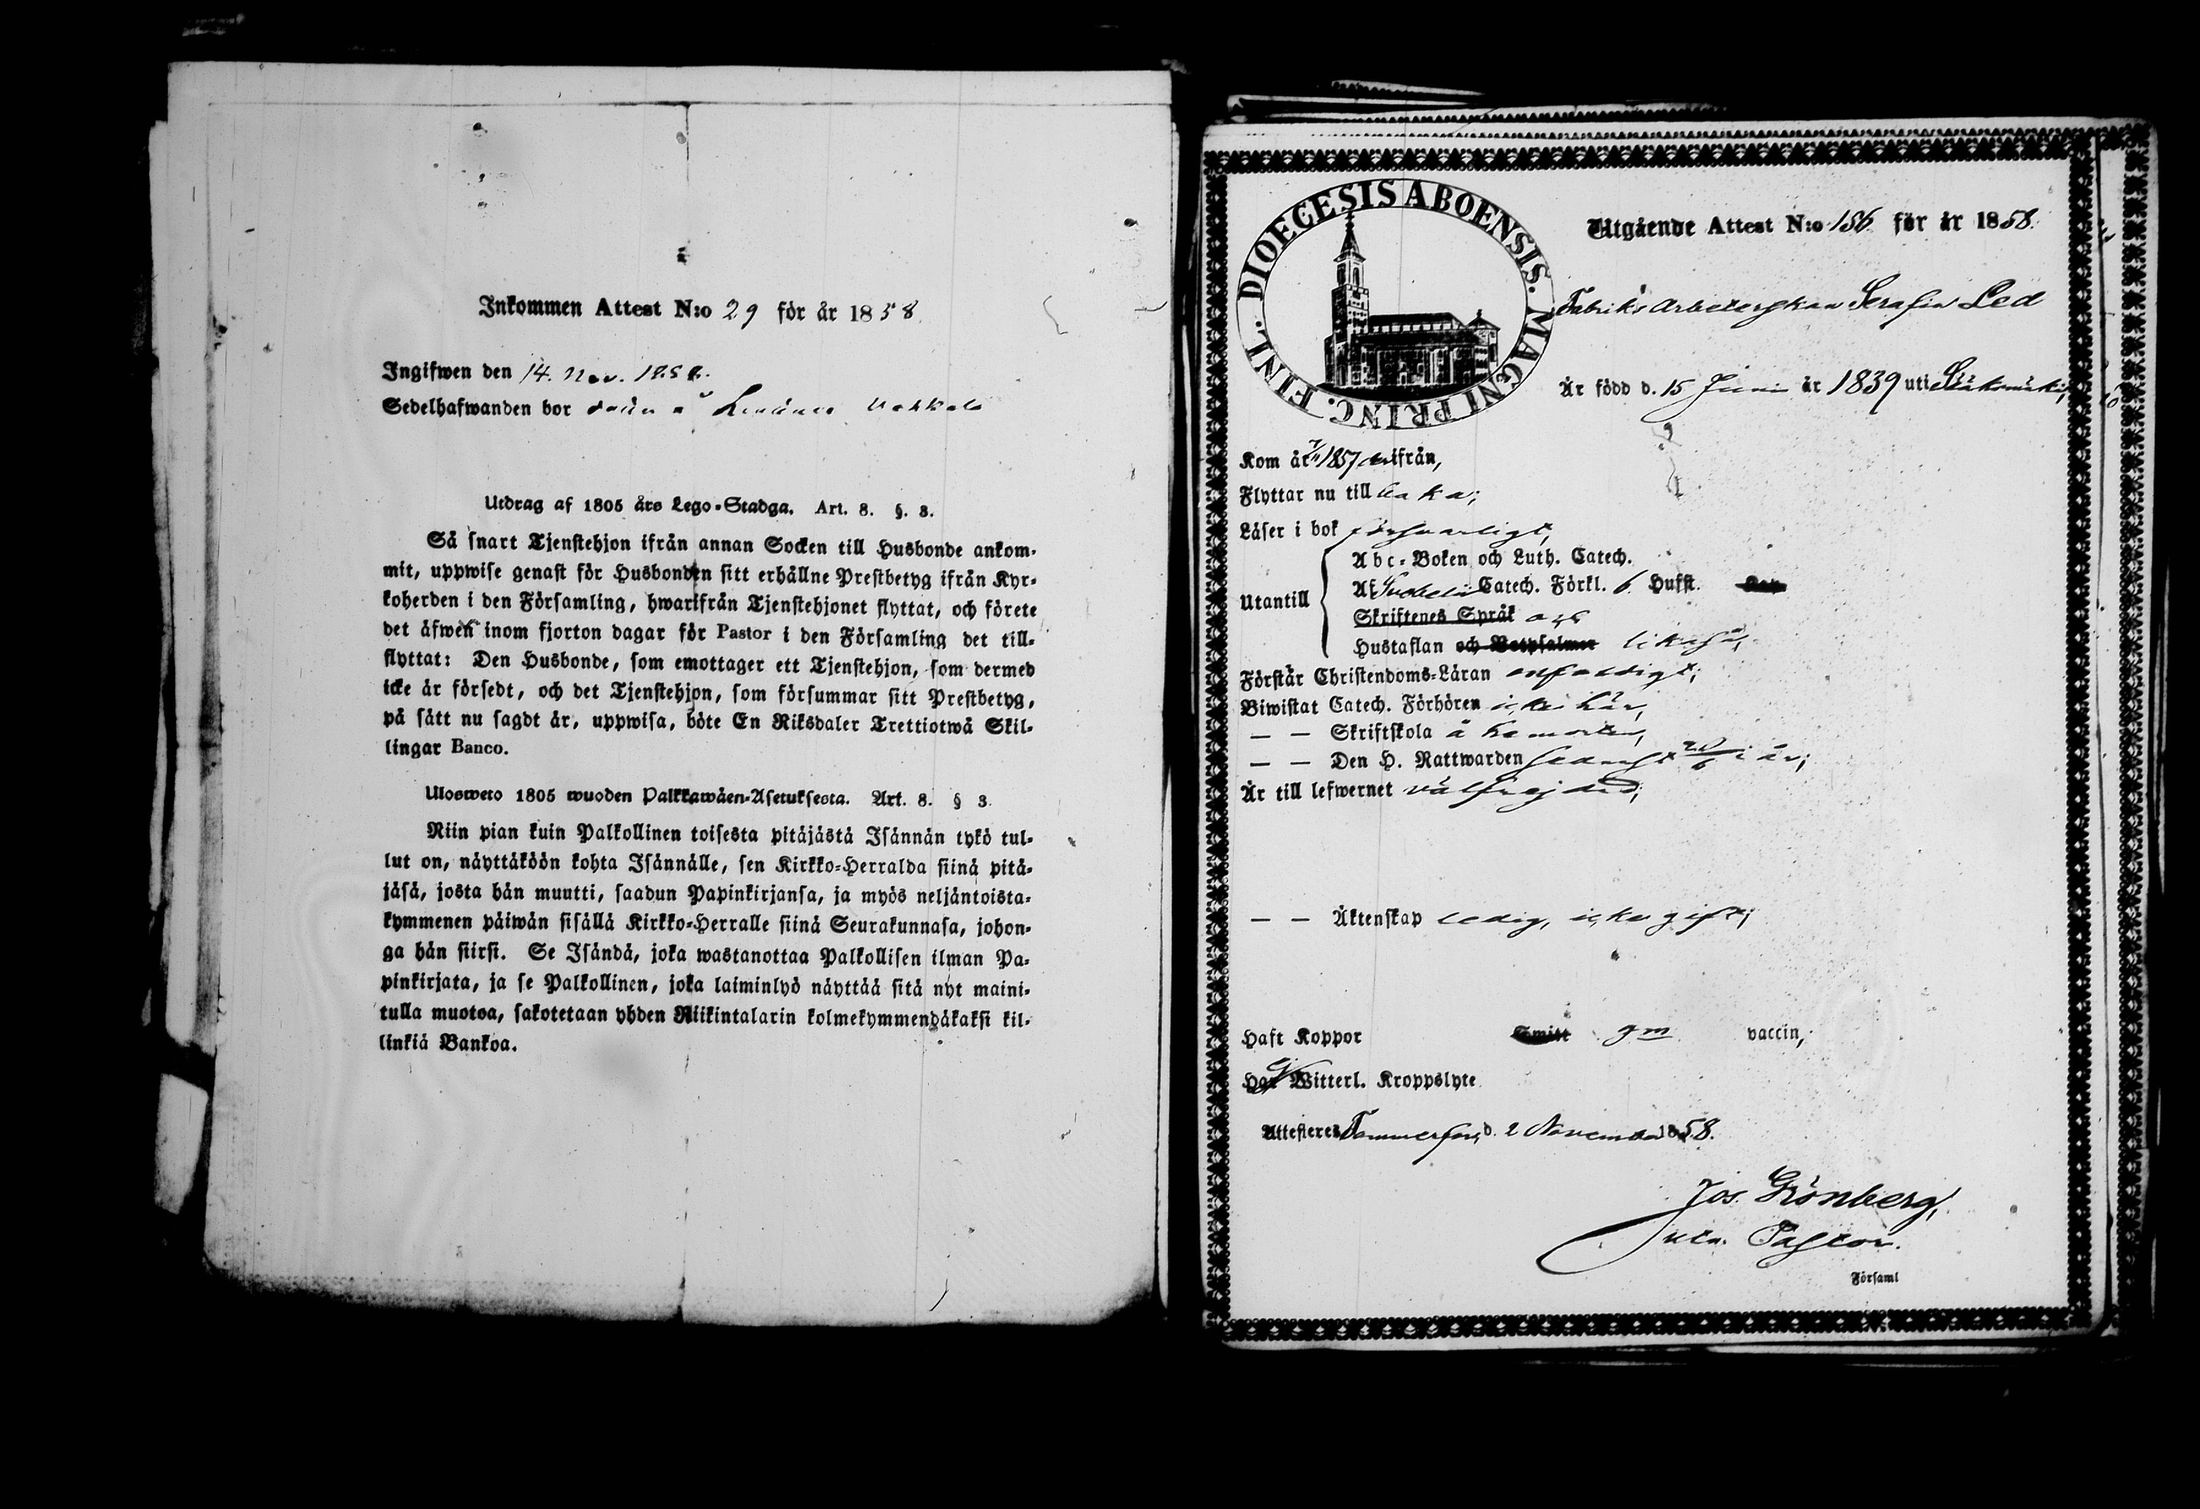 Inkommen Attest N:o 29 för år 1858
Ingifwen den 14. Nov. 1858.
Sedelhafwanden bor
Utdrag af 1805 års Lego-Stadga. Art. 8. §. 3.
Så snart Tjenstehjon ifrån annan Socken till Husbonde ankom-
mit, uppwise genast för Husbonden sitt erhållne Prestbetyg ifrån Kyr-
koherden i den Församling, hwarifrån Tjenstehjonet flyttat, och förete
det äfwen inom fjorton dagar för Pastor i den Församling det till-
flyttat: Den Husbonde, som emottager ett Tjenstehjon, som dermed
icke är försedt, och det Tjenstehjon, som försummar sitt Prestbetyg,
på sätt nu sagdt är, uppwisa, böte En Riksdaler Trettiotwå Skil-
lingar Banco.
Ulosweto 1805 wuoden Palkkawäen-Asetuksesta. Art. 8. § 3.
Niin pian kuin Palkollinen toisesta pitäjästä Isännän tykö tul-
lut on, näyttäköön kohta Isännälle, sen Kirkko-Herralda siinä pitä-
jäsä, josta hän muutti, saadun Papinkirjansa, ja myös neljäntoista-
kymmenen päiwän sisällä Kirkko-Herralle siinä Seurakunnasa, johon-
ga hän siirsi. Se Isändä, joka wastanottaa Palkollisen ilman Pa-
pinkirjata, ja se Palkollinen, joka laiminlyö näyttää sitä nyt maini-
tulla muotoa, sakotetaan yhden Riikintalarin kolmekymmendäkaksi kil-
linkiä Bankoa.
DIOECESIS ABOENSIS. MAGNI PRINC. FINL.
Utgående Attest N:o 156 för år 1858.
Fabriks Arbeterskan Serafia Led
Är född d. 15 Juni år 1839 uti Sääksmäki,
Kom år 1857 derifrån,
Flyttar nu till baka;
Läser i bok försvarligt,
Utantill
Abc-Boken och Luth. Catech.
Af Svebelii Catech. Förkl. 6 Hufst.
Skriftenes Språk
Hustaflan och Botpsalmer likaså,
Förstår Christendoms-Läran enfaldigt;
Biwistat Catech. Förhören icke här,
— — Skriftskola å hemorten,
— — Den H. Nattwarden senast 20/6 i år;
Är till lefwernet välfrejdad;
— — Äktenskap ledig, icke gift;
Haft Koppor Smitt gm vaccin,
Har Witterl. Kroppslyte
Attesteres Tammerfors, d. 2 November 1858.
Jos. Grönberg,
Pastor.
Församl